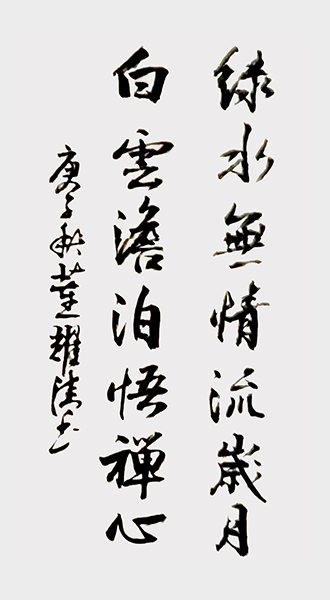 綠水無情流歲月
白雲澹泊悟禪心
庚子秋董耀清书